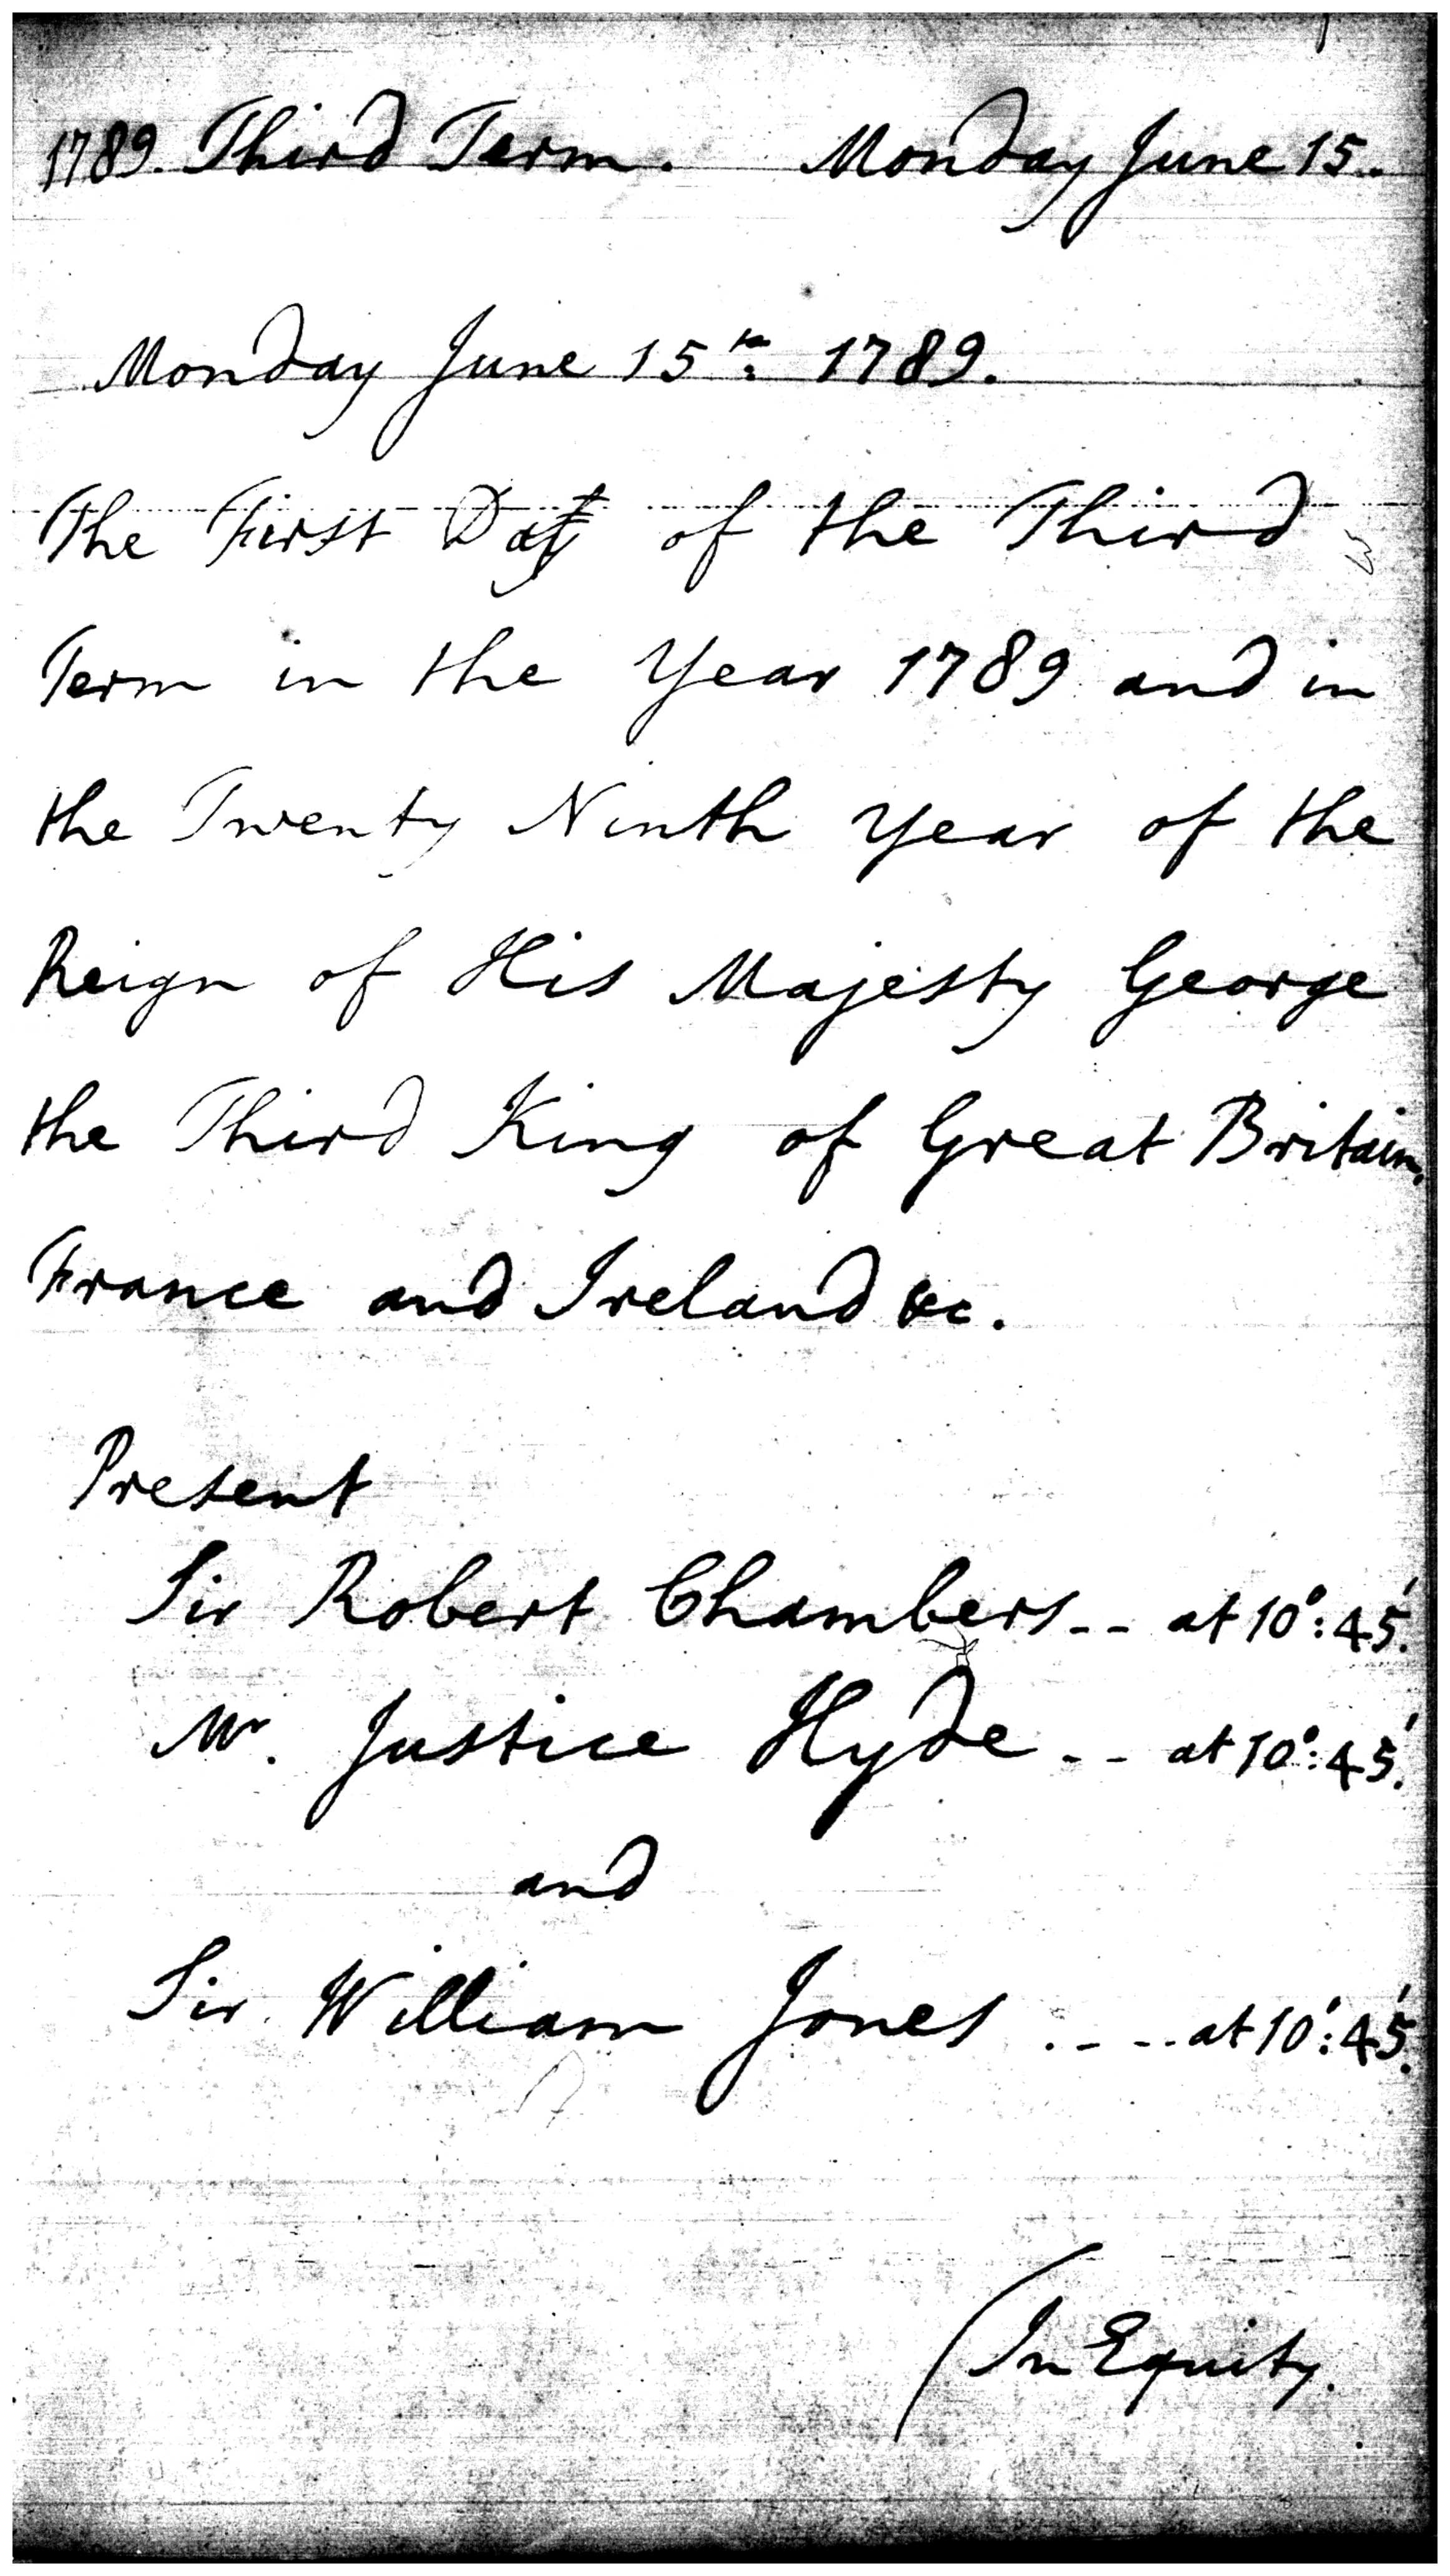 1789. Third Term. Monday June 15.
Monday June 15th. 1789.
The First Day of the Third
Term in the Year 1789 and in
the Twenty Ninth Year of the
Reign of His Majesty George
the Third King of Great Britain,
France and Ireland &c.
Present
Sir Robert Chambers -- at 10°: 45'.
Mr. Justice Hyde -- at 10°: 45'.
and
Sir William Jones ---- at 10': 45'.
(In Equity.